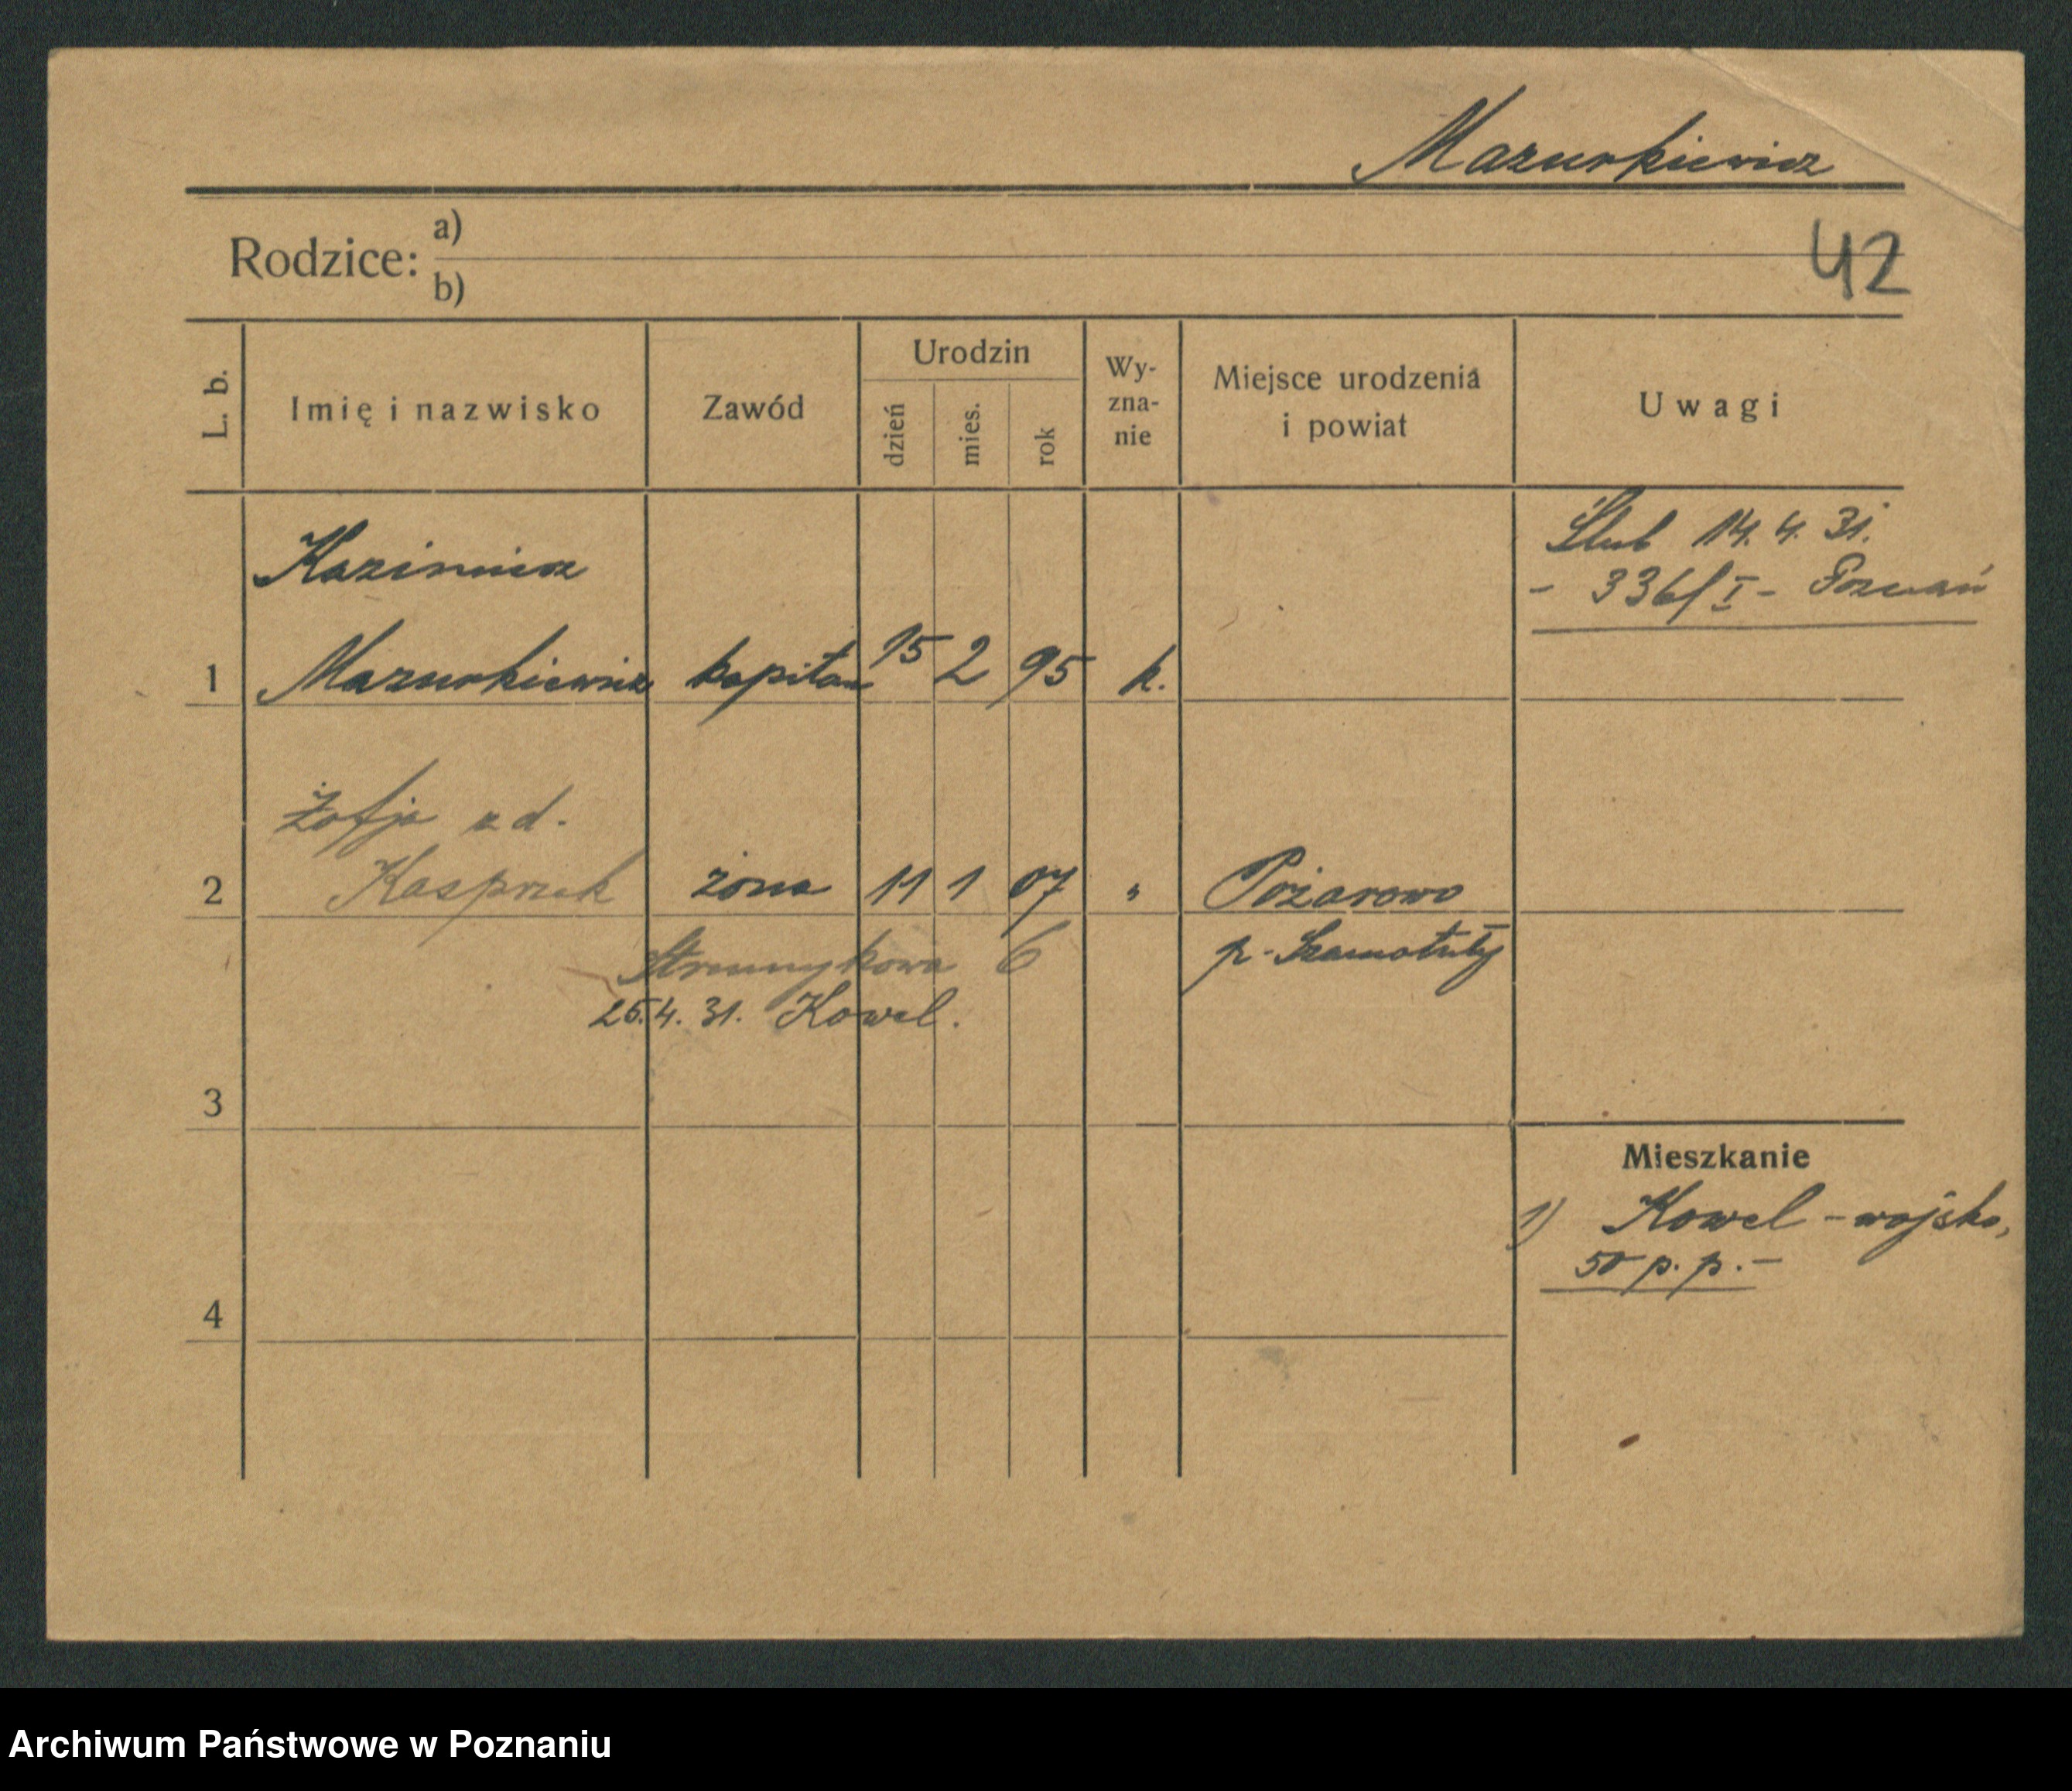 Mazurkiewicz
Rodzice: a)
b)
42
L. b. Imię i nazwisko Zawód Urodzin dzień mies. rok Wy-zna-nie Miejsce urodzenia i powiat Uwagi
Ślub 14. 4. 31.
- 336/I - Poznań
Kazimierz
1 Mazurkiewicz kapitan 15 2 95 k.
Zofja z d.
2 Kasprzak żona 11 1 07 " Pożarowo
p. Szamotuły
6
25.4. 31. Kowel.
3
Mieszkanie
1) Kowel - wojsko,
50 p. p. -
4
Archiwum Państwowe w Poznaniu